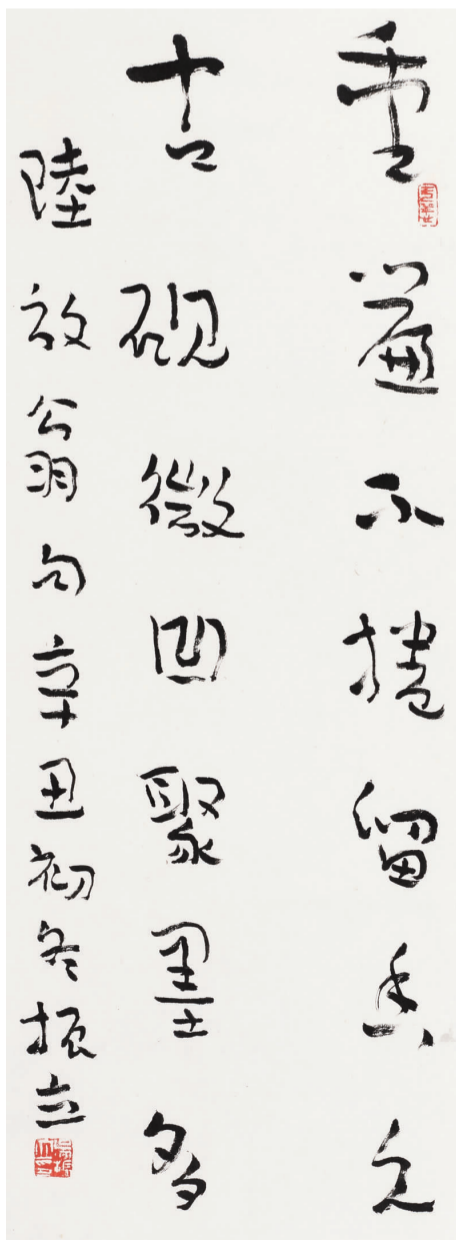 重簾不捲留香久
古硯微凹聚墨多
陸放翁句辛丑初冬振立